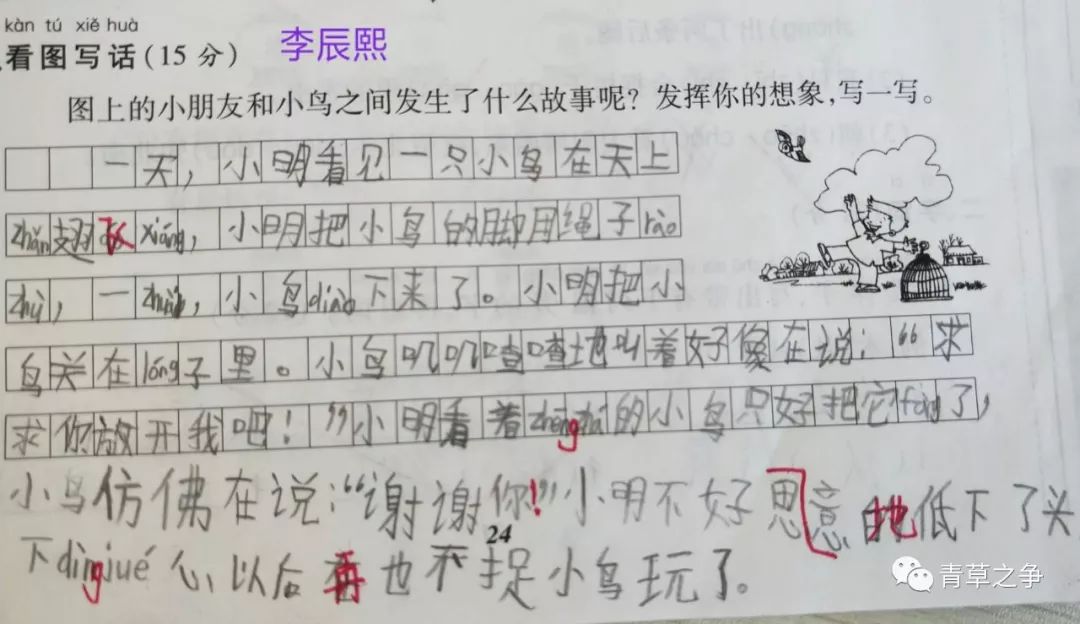 kàn tú xiě huà
看图写话(15分)
李辰熙
图上的小朋友和小鸟之间发生了什么故事呢?发挥你的想象,写一写。
一天，小明看见一只小鸟在天上
zhǎn翅 xiáng，小明把小鸟的脚用绳子rào
zhù，一 ，小鸟diào下来了。小明把小
鸟关在lóng子里。小鸟叽叽喳喳地叫着好像在说：“求
求你放开我吧！”小明看着zhēngzhá的小鸟只好把它fàng了，
小鸟仿佛在说：“谢谢你！”小明不好意思地低下了头
24
下dìngjué心以后再也不捉小鸟玩了。
青草之争